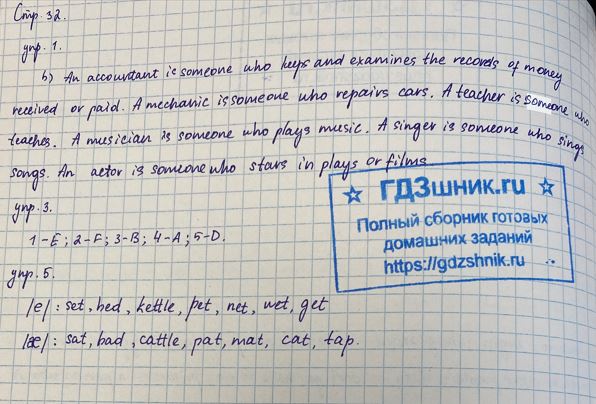 Стр. 32.
упр. 1.
b) An accountant is someone who keeps and examines the records of money
received or paid. A mechanic is someone who repairs cars. A teacher is someone who
teaches. A musician is someone who plays music. A singer is someone who sings
songs. An actor is someone who stars in plays or films
упр. 3.
1-E; 2-F; 3-B; 4-A; 5-D.
упр. 5.
/e/: set, bed, kettle, pet, net, wet, get
/æ/: sat, bad, cattle, pat, mat, cat, tap.
ГДЗшник.ru
Полный сборник готовых
домашних заданий
https://gdzshnik.ru